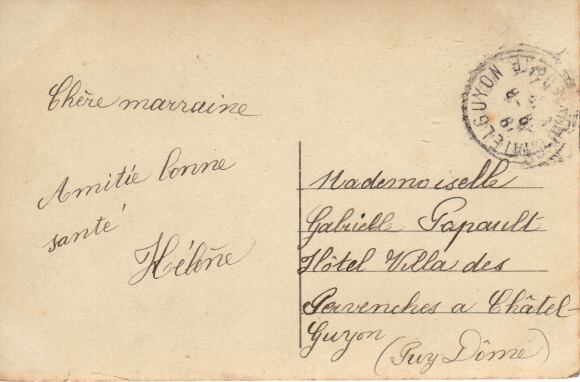 Chère marraine
Amitié bonne
santé
Hélène
Mademoiselle
Gabrielle Papault
Hôtel Villa des
Pervenches a Châtel-
Guyon
(Puy Dôme)
CHATELGUYON